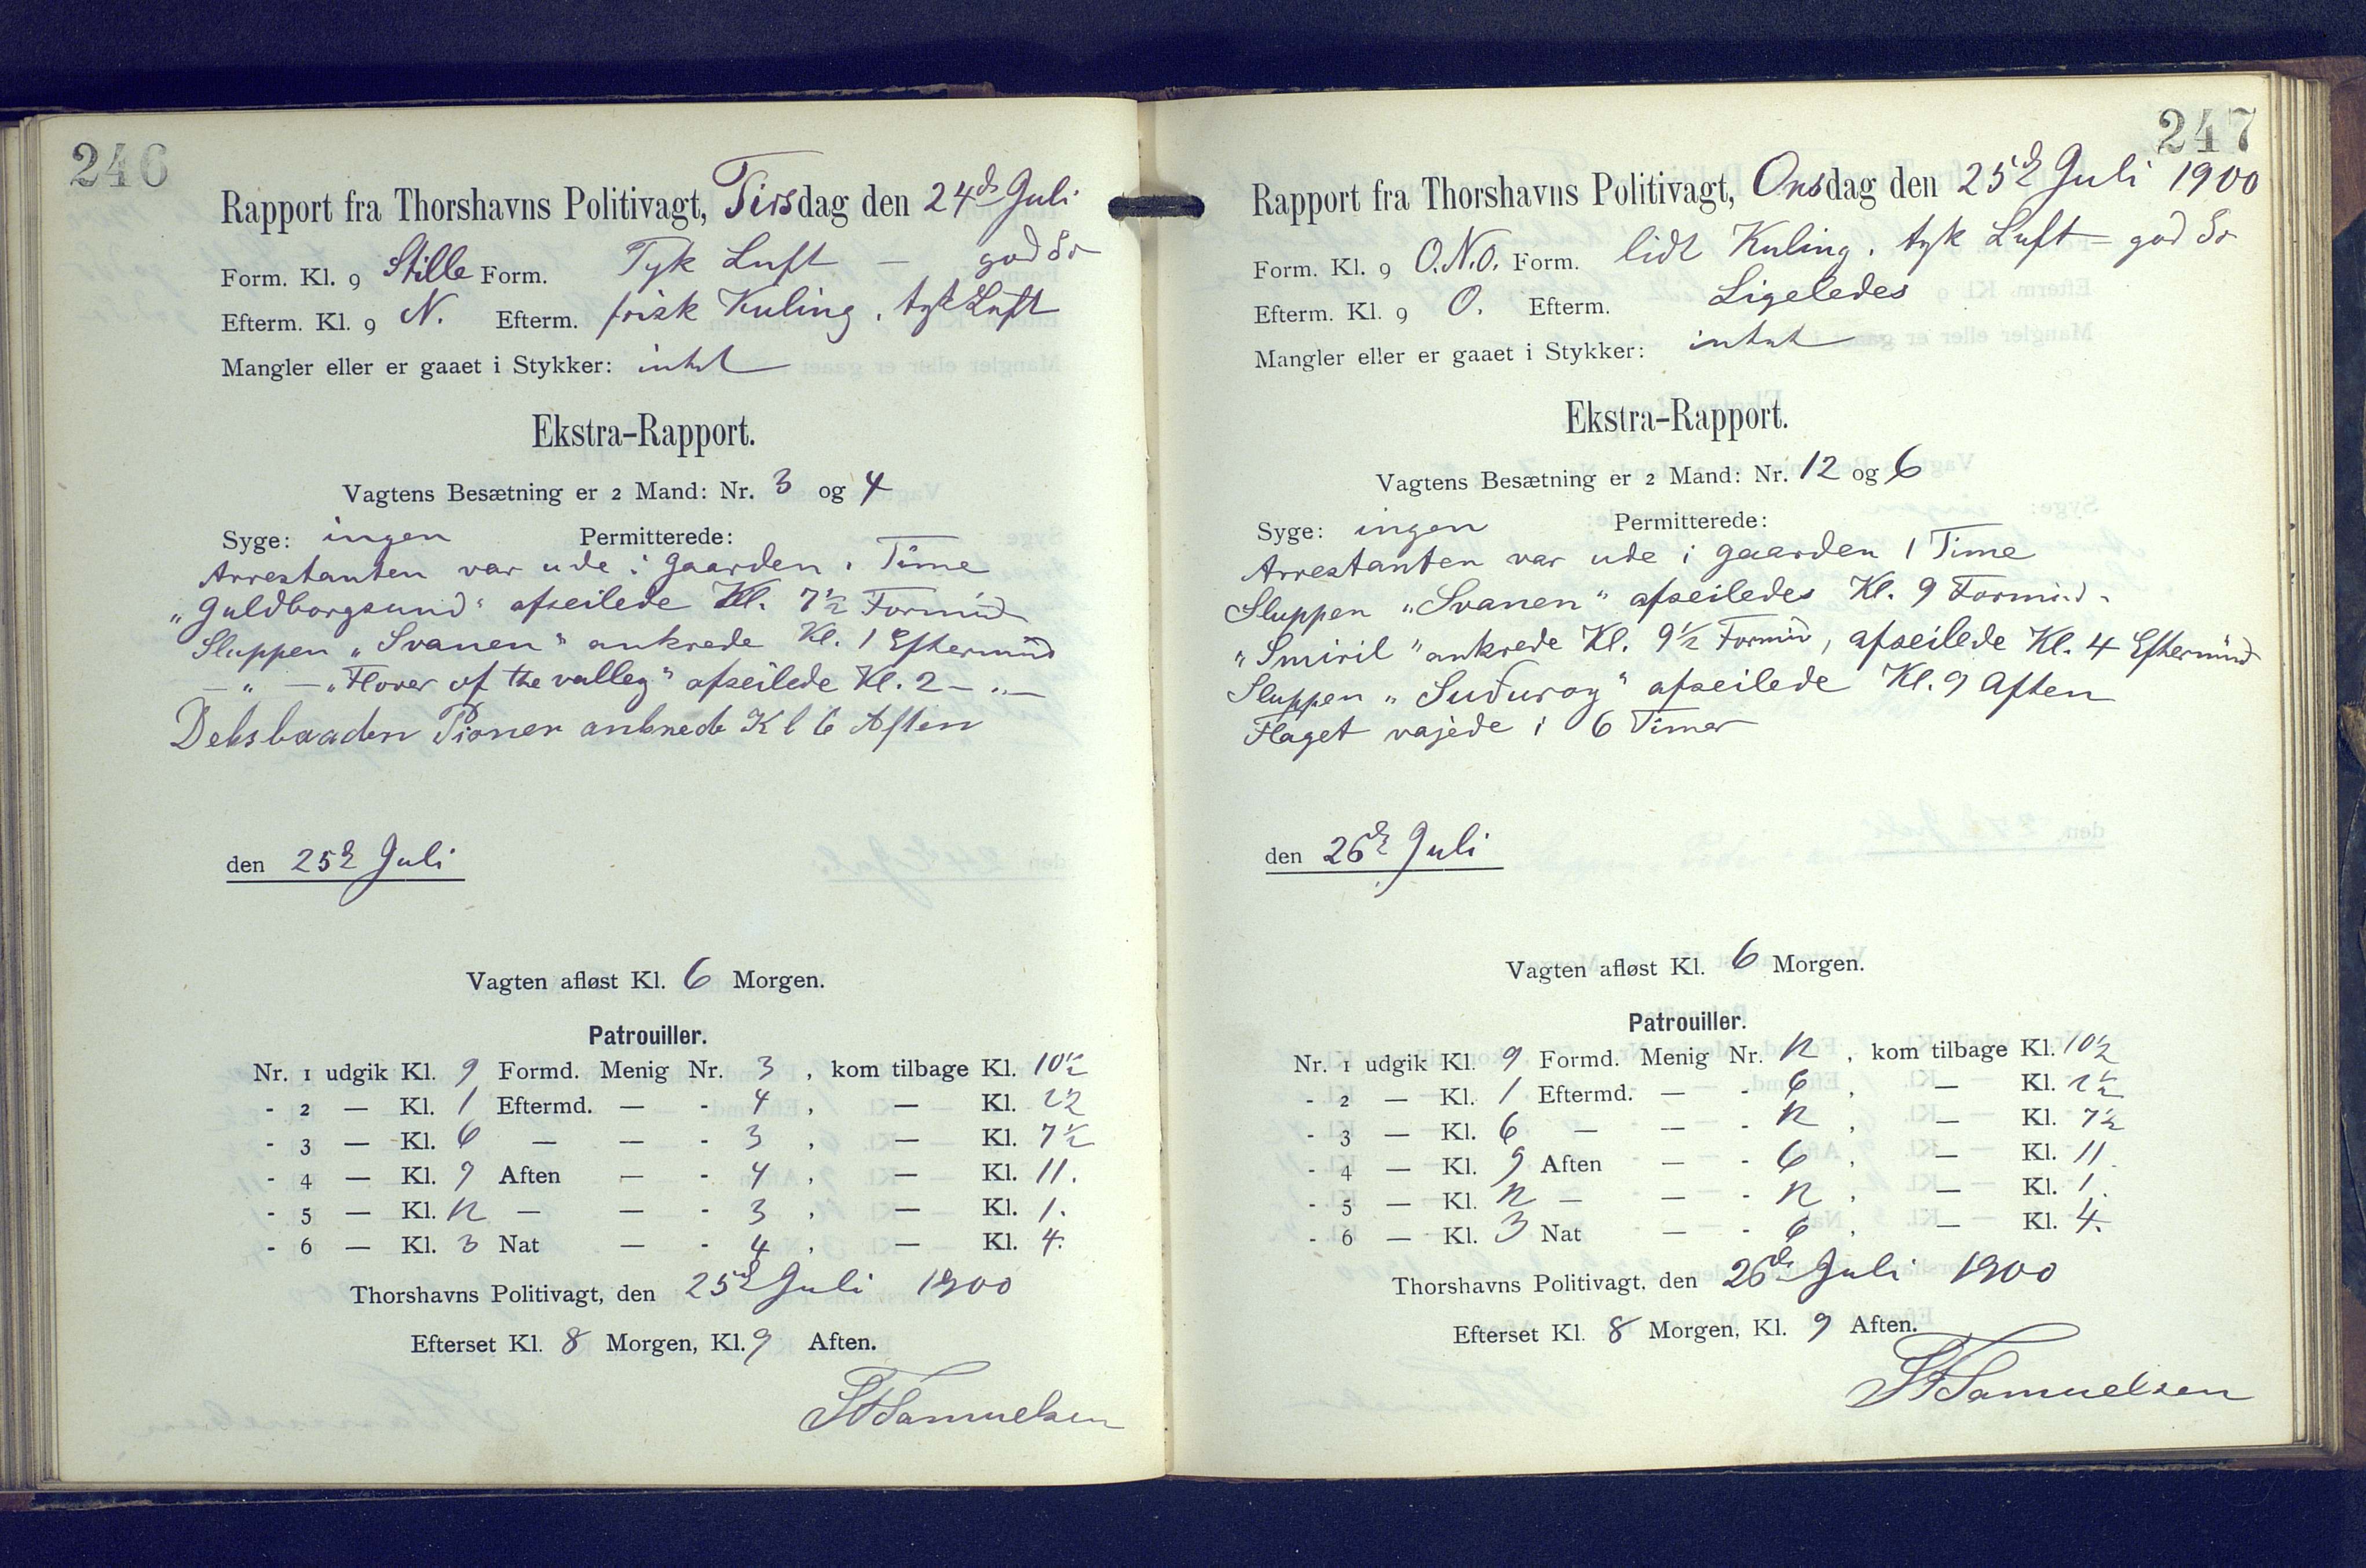 246
Rapport fra Thorshavns Politivagt, Tirsdag den 24d Juli
Form. Kl. 9 Stille Form. Tyk Luft — god Sr
Efterm. Kl. 9 N. Efterm. frisk Kuling, tyk Luft
Mangler eller er gaaet i Stykker: intet
Ekstra-Rapport.
Vagtens Besætning er 2 Mand: Nr. 3 og 4
Syge: ingen Permitterede:
Arrestanten var ude i Gaarden 1 Time
"Guldborgsund" afseilede Kl. 7½ Formid
Sluppen "Svanen" ankrede Kl. 1 Eftermid
— " — "Flover of the valley" afseilede Kl. 2 — " —
Deksbaaden Pioner ankrede Kl 6 Aften
den 25d Juli
Vagten afløst Kl. 6 Morgen.
Patrouiller.
Nr. 1 udgik Kl. 9 Formd. Menig Nr. 3, kom tilbage Kl. 10½
- 2 — Kl. 1 Eftermd. — - 4, — Kl. 2½
- 3 — Kl. 6 — — - 3, — Kl. 7½
- 4 — Kl. 9 Aften — - 4, — Kl. 11.
- 5 — Kl. 12 — — - 3, — Kl. 1.
- 6 — Kl. 3 Nat — - 4, — Kl. 4.
Thorshavns Politivagt, den 25d Juli 1900
Efterset Kl. 8 Morgen, Kl. 9 Aften.
Samuelsen
247
Rapport fra Thorshavns Politivagt, Onsdag den 25d Juli 1900
Form. Kl. 9 O.N.O. Form. lidt Kuling, tyk Luft = god Sr
Efterm. Kl. 9 O. Efterm. Ligeledes
Mangler eller er gaaet i Stykker: intet
Ekstra-Rapport.
Vagtens Besætning er 2 Mand: Nr. 12 og 6
Syge: ingen Permitterede:
Arrestanten var ude i gaarden 1 Time
Sluppen "Svanen" afseiledes Kl. 9 Formid.
"Smiril" ankrede Kl. 9½ Formid, afseilede Kl. 4 Eftermid
Sluppen "Suduroy" afseilede Kl. 9 Aften
Flaget vajede i 6 Timer
den 26d Juli
Vagten afløst Kl. 6 Morgen.
Patrouiller.
Nr. 1 udgik Kl. 9 Formd. Menig Nr. 12, kom tilbage Kl. 10½
- 2 — Kl. 1 Eftermd. — - 6, — Kl. 2½
- 3 — Kl. 6 — — - 12, — Kl. 7½
- 4 — Kl. 9 Aften — - 6, — Kl. 11.
- 5 — Kl. 12 — — - 12, — Kl. 1.
- 6 — Kl. 3 Nat — - 6, — Kl. 4.
Thorshavns Politivagt, den 26de Juli 1900
Efterset Kl. 8 Morgen, Kl. 9 Aften.
Samuelsen